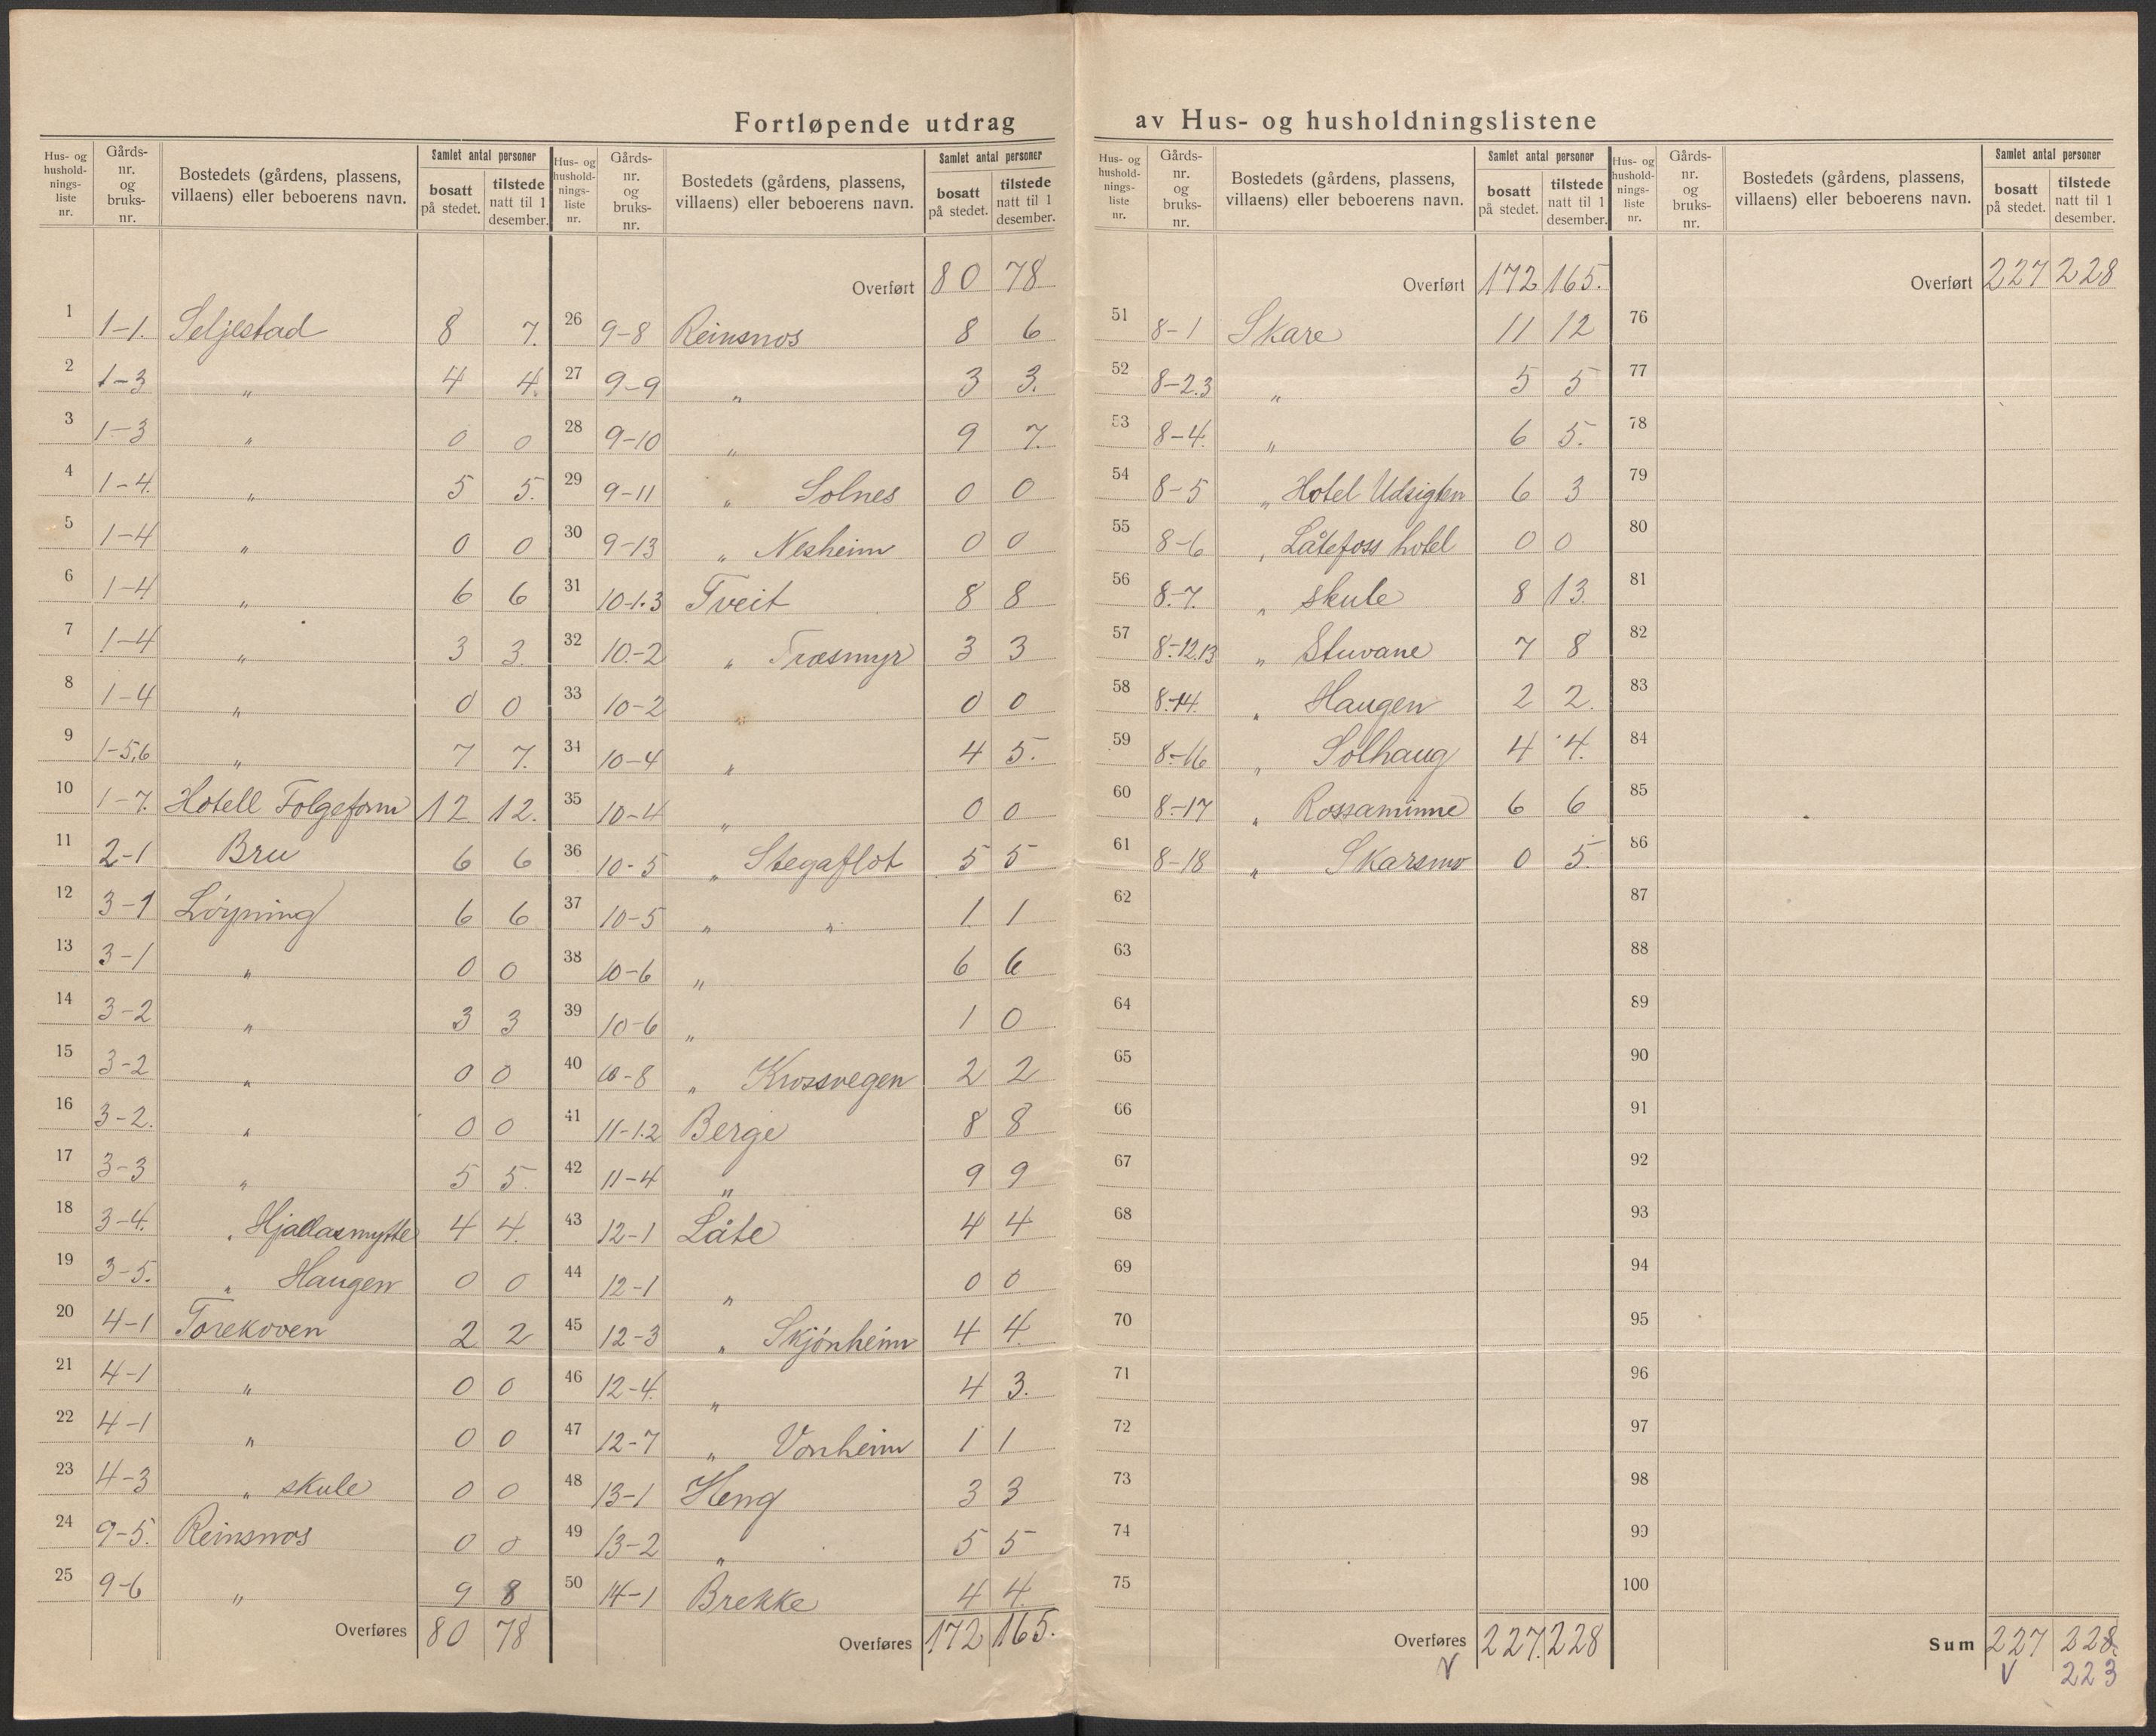 Fortløpende utdrag av Hus- og husholdningslistene
Hus- og hushold-nings-liste nr. | Gårds-nr. og bruks-nr. | Bostedets (gårdens, plassens, villaens) eller beboerens navn. | Samlet antal personer | bosatt på stedet. | tilstede natt til 1 desember.
1 1-1. Seljestad 8 7.
2 1-3 " 4 4.
3 1-3 " 0 0
4 1-4. " 5 5.
5 1-4 " 0 0
6 1-4 " 6 6
7 1-4 " 3 3.
8 1-4 " 0 0
9 1-5,6 " 7 7.
10 1-7. Hotell Folgefonn 12 12.
11 2-1 Bru 6 6
12 3-1 Løyning 6 6
13 3-1 " 0 0
14 3-2 " 3 3
15 3-2 " 0 0
16 3-2. " 0 0
17 3-3 " 5 5.
18 3-4. " Hjallasmytte 4 4.
19 3-5. " Haugen 0 0
20 4-1 Torekoven 2 2
21 4-1 " 0 0
22 4-1 " 0 0
23 4-3 " skule 0 0
24 9-5. Reinsnos 0 0
25 9-6 " 9 8
Overføres 80 78
Hus- og hushold-nings-liste nr. | Gårds-nr. og bruks-nr. | Bostedets (gårdens, plassens, villaens) eller beboerens navn. | Samlet antal personer | bosatt på stedet. | tilstede natt til 1 desember.
Overført 80 78
26 9-8 Reinsnos 8 6
27 9-9 " 3 3.
28 9-10 " 9 7.
29 9-11 " Solnes 0 0
30 9-13 " Nesheim 0 0
31 10-1.3 Tveit 8 8
32 10.-2 " Træsmyr 3 3
33 10-2 " 0 0
34 10-4 " 4 5.
35 10-4 " 0 0
36 10-5 " Stegaflot 5 5
37 10-5 " " 1 1
38 10-6 " 6 6
39 10-6 " 1 0
40 10-8 " Krossvegen 2 2
41 11-1.2 Berge 8 8
42 11-4 " 9 9
43 12-1 Låte 4 4
44 12-1 " 0 0
45 12-3 " Skjønheim 4 4.
46 12-4. " 4 3.
47 12-7 " Vonheim 1 1
48 13-1 Heng 3 3
49 13-2 " 5 5
50 14-1 Brekke 4 4.
Overføres 172 165.
Hus- og hushold-nings-liste nr. | Gårds-nr. og bruks-nr. | Bostedets (gårdens, plassens, villaens) eller beboerens navn. | Samlet antal personer | bosatt på stedet. | tilstede natt til 1 desember.
Overført 172 165.
51 8-1 Skare 11 12
52 8-2.3 " 5 5
53 8-4. " 6 5.
54 8-5 " Hotel Udsigten 6 3
55 8-6 " Låtefoss hotel 0 0
56 8.-7. " skule 8 13.
57 8.-12.13 " Stuvane 7 8
58 8.-14. " Haugen 2 2.
59 8.-16 " Solhaug 4 4.
60 8.-17 " Rossaminne 6 6
61 8-18 " Skarsmo 0 5.
62
63
64
65
66
67
68
69
70
71
72
73
74
75
Overføres 227. 228
V
Hus- og hushold-nings-liste nr. | Gårds-nr. og bruks-nr. | Bostedets (gårdens, plassens, villaens) eller beboerens navn. | Samlet antal personer | bosatt på stedet. | tilstede natt til 1 desember.
Overført 227 228
76
77
78
79
80
81
82
83
84
85
86
87
88
89
90
91
92
93
94
95
96
97
98
99
100
Sum 227 228.
V 223